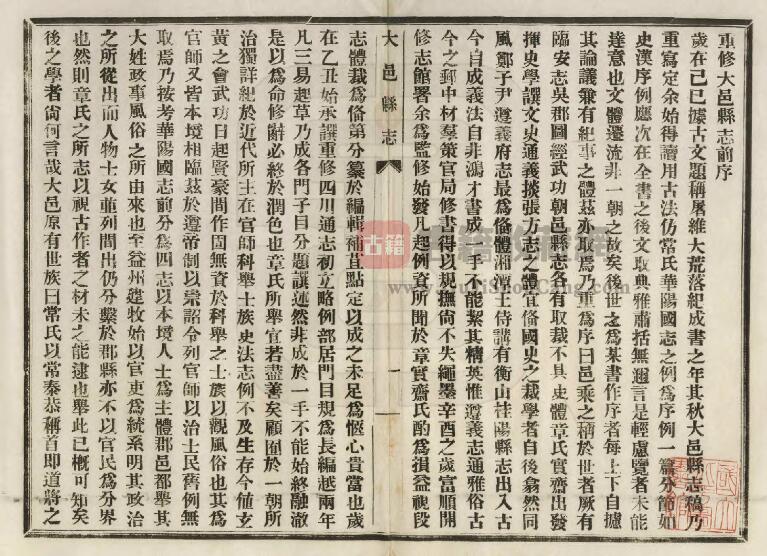 重修大邑縣志前序
歲在己巳據古文題稱屠維大荒落紀成書之年其秋大邑縣志稿乃
重寫定余始得讀用古法仿常氏華陽國志之例爲序例一篇分節如
史漢序例應次在全書之後文取典雅肅括無逈言是輕慮覽者未能
達意也文體遷流非一朝之故矣後世之爲某書作序者每上下自據
其論議兼有紀事之體茲亦取焉乃重爲序曰邑乘之稱於世者厥有
臨安志吳郡圖經武功朝邑縣志各有取裁不具史體章氏實齋出發
揮史學譔文史通義掞張方志之體宜僃國史之裁學者自後翕然同
風鄭子尹遵義府志最爲僃體湘潭王侍講有衡山桂陽縣志出入古
今自成義法自非鴻才書成一手不能絜其精英惟遵義志通雅俗古
今之郵中材羣策官局修書得以規撫尙不失繩墨辛酉之歲富順開
修志館署余爲監修始發凡起例資所聞於章實齋氏酌爲損益視段
大邑縣志
一
志體裁爲僃第分纂於編輯補苴點定以成之未足爲愜心貴當也歲
在乙丑始承譔重修四川通志初立略例部居門目規爲長編越兩年
凡三易起草乃成各門子目分題譔述然非成於一手不能始終融澈
是以爲命修辭必終於潤色也章氏所舉宜若盡善矣顧囿於一朝所
治獨詳紀於近代所主在官師科舉士族史法志例不及生存今値玄
黃之會武功日起賢豪間作固無資於科舉之士族以觀風俗也其爲
官師又皆本境相臨茲於遵帝制以崇詔令列官師以治士民舊例無
取焉乃按考華陽國志前分爲四志以本境人士爲主體郡邑都舉其
大姓政事風俗之所由來也至益州建牧始以官吏爲統系明其政治
之所從出而人物士女並列間出仍分繫於郡縣亦不以官民爲分界
也然則章氏之所志以視古作者之材未之能逮也舉此已槪可知矣
後之學者尙何言哉大邑原有世族曰常氏以常泰恭稱首即道將之